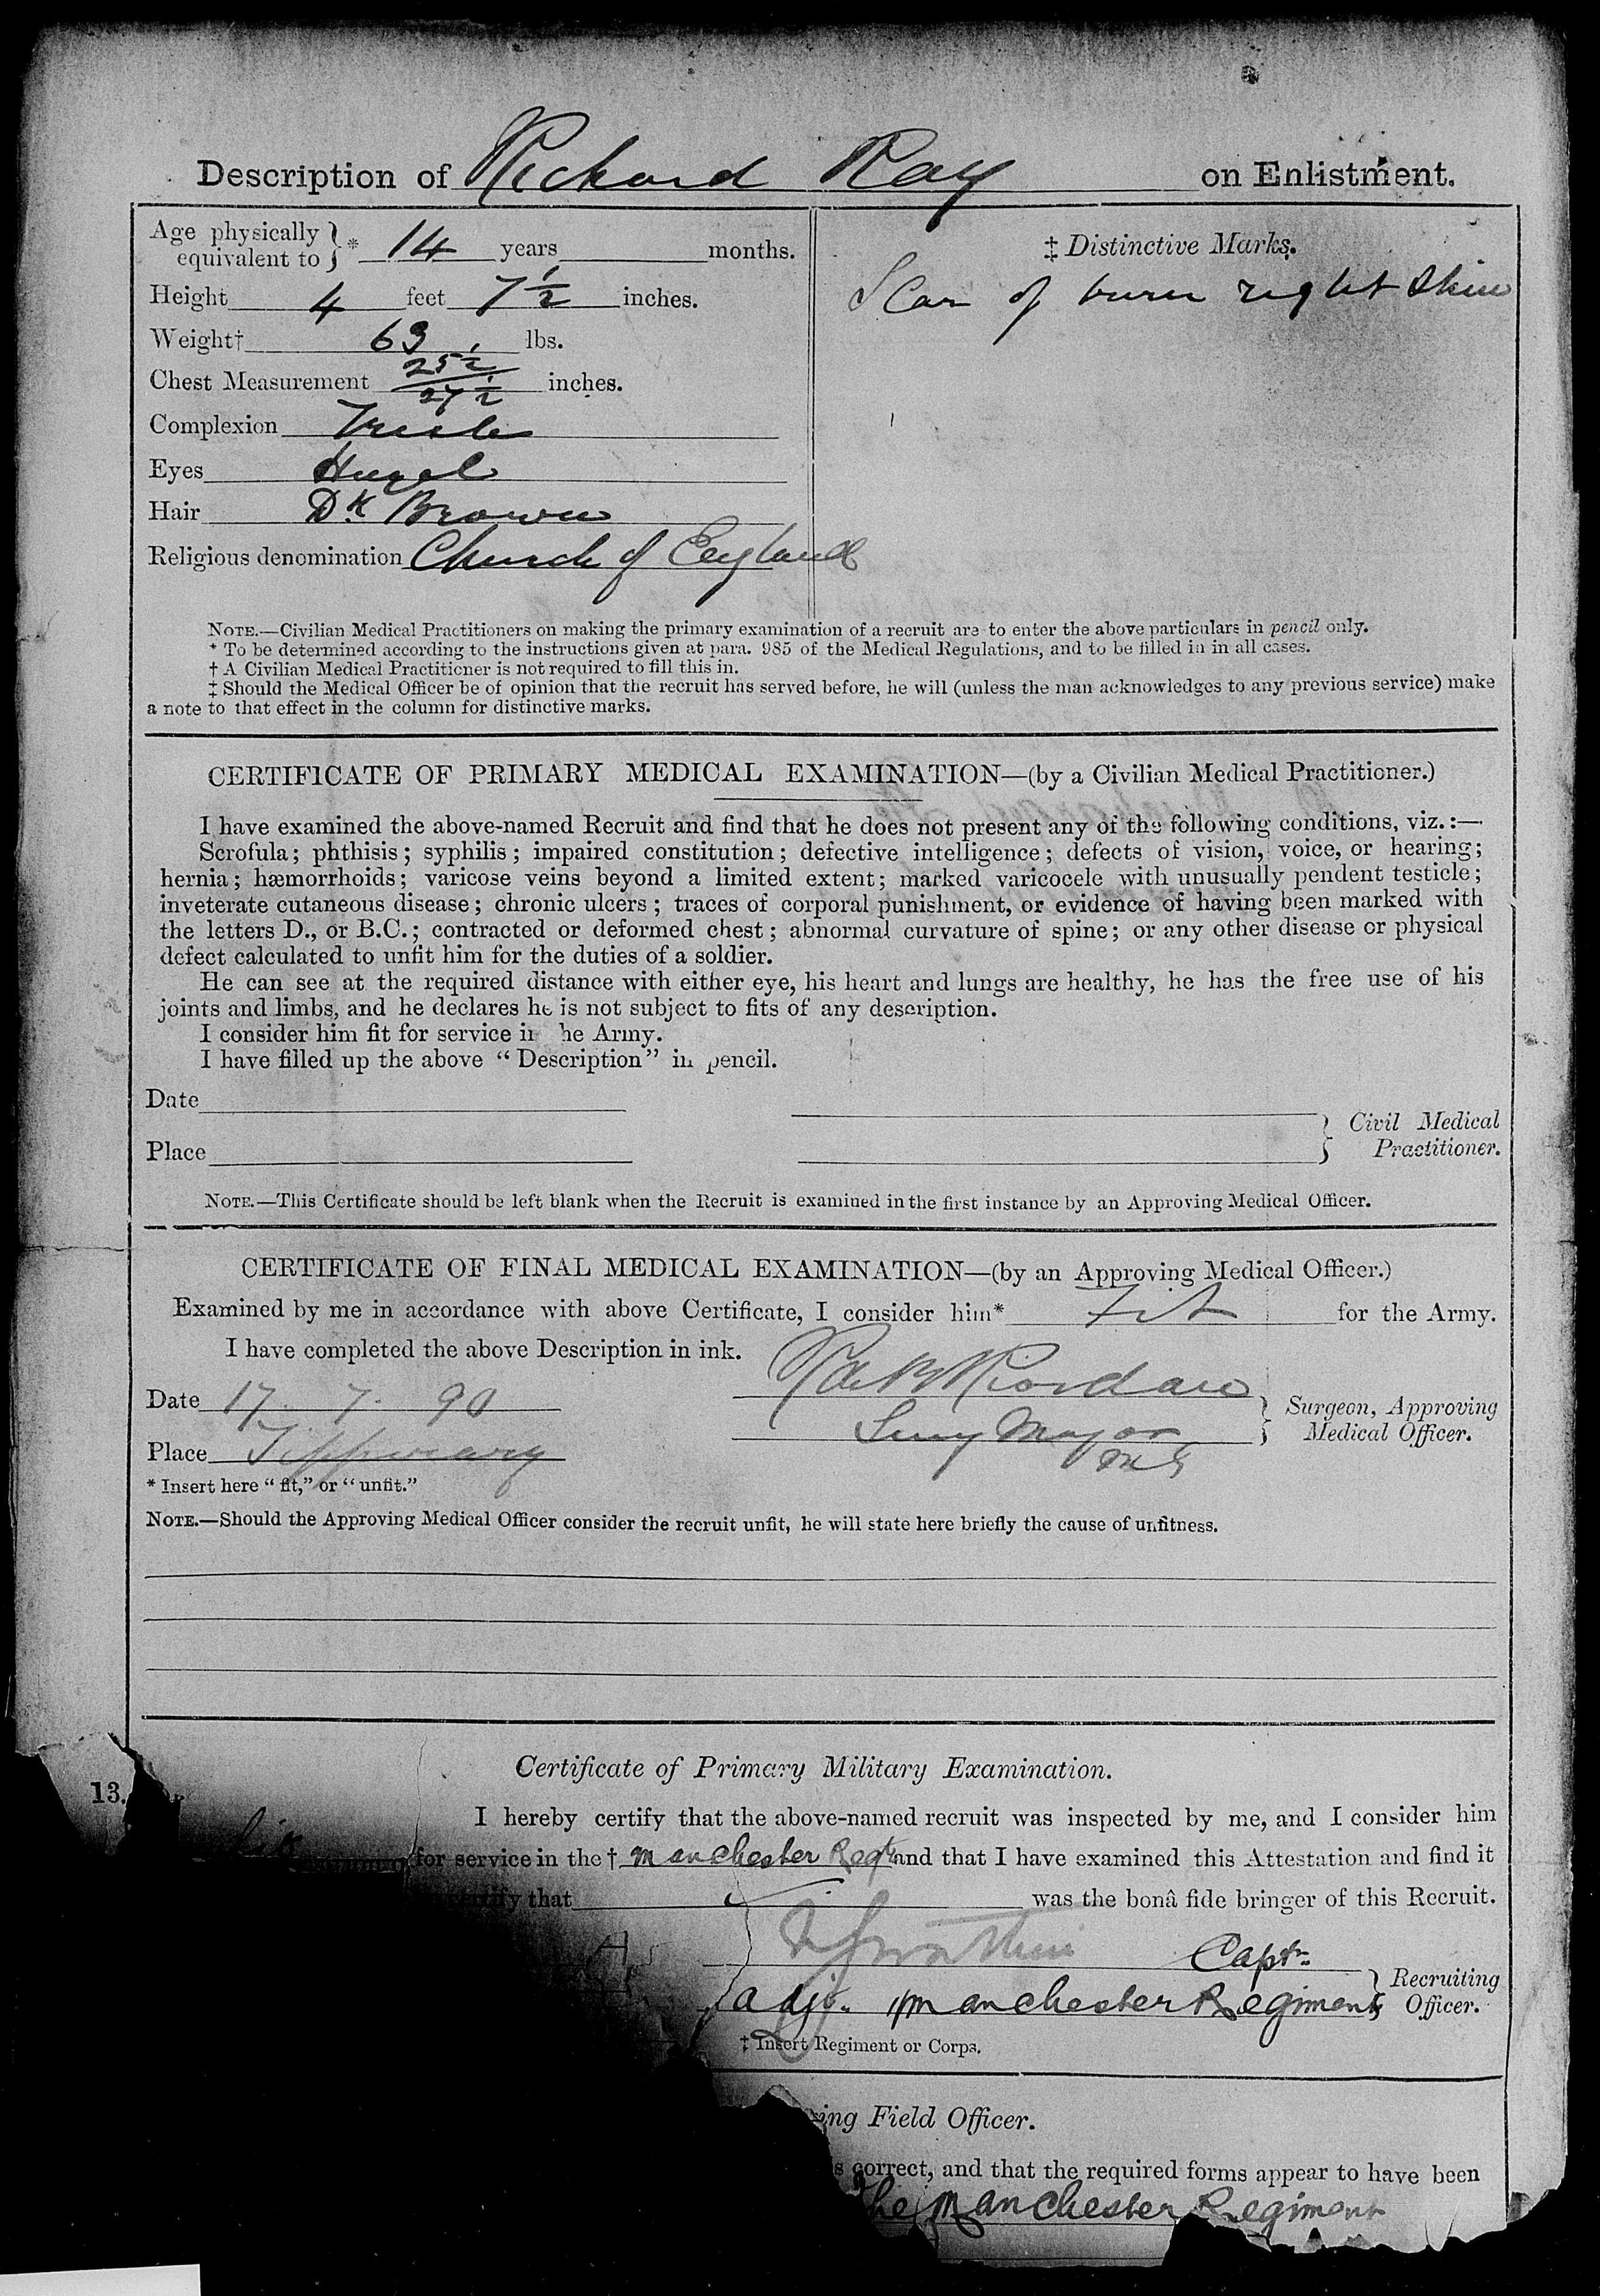 Description of Richard Ray on Enlistment.
Age physically equivalent to }* 14 years months.
Height 4 feet 7 1/2 inches.
Weight† 63 lbs.
Chest Measurement 25 1/2 / 27 1/2 inches.
Complexion Fresh
Eyes Hazel
Hair Dk Brown
Religious denomination Church of England
‡ Distinctive Marks.
Scar of burn right shin
NOTE.—Civilian Medical Practitioners on making the primary examination of a recruit are to enter the above particulars in pencil only.
* To be determined according to the instructions given at para. 985 of the Medical Regulations, and to be filled in in all cases.
† A Civilian Medical Practitioner is not required to fill this in.
‡ Should the Medical Officer be of opinion that the recruit has served before, he will (unless the man acknowledges to any previous service) make
a note to that effect in the column for distinctive marks.
CERTIFICATE OF PRIMARY MEDICAL EXAMINATION—(by a Civilian Medical Practitioner.)
I have examined the above-named Recruit and find that he does not present any of the following conditions, viz.:—
Scrofula; phthisis; syphilis; impaired constitution; defective intelligence; defects of vision, voice, or hearing;
hernia; hæmorrhoids; varicose veins beyond a limited extent; marked varicocele with unusually pendent testicle;
inveterate cutaneous disease; chronic ulcers; traces of corporal punishment, or evidence of having been marked with
the letters D., or B.C.; contracted or deformed chest; abnormal curvature of spine; or any other disease or physical
defect calculated to unfit him for the duties of a soldier.
He can see at the required distance with either eye, his heart and lungs are healthy, he has the free use of his
joints and limbs, and he declares he is not subject to fits of any description.
I consider him fit for service in he Army.
I have filled up the above "Description" in pencil.
Date
Place
} Civil Medical Practitioner.
NOTE.—This Certificate should be left blank when the Recruit is examined in the first instance by an Approving Medical Officer.
CERTIFICATE OF FINAL MEDICAL EXAMINATION—(by an Approving Medical Officer.)
Examined by me in accordance with above Certificate, I consider him* Fit for the Army.
I have completed the above Description in ink.
Date 17. 7. 90
Riordan
Place Tipperary
Surg Major
MS
} Surgeon, Approving Medical Officer.
* Insert here "fit," or "unfit."
NOTE.—Should the Approving Medical Officer consider the recruit unfit, he will state here briefly the cause of unfitness.
Certificate of Primary Military Examination.
13.
I hereby certify that the above-named recruit was inspected by me, and I consider him
for service in the † Manchester Regt and that I have examined this Attestation and find it
that was the bonâ fide bringer of this Recruit.
Captn
Adjt. Manchester Regiment
} Recruiting Officer.
‡ Insert Regiment or Corps.
ing Field Officer.
s correct, and that the required forms appear to have been
the Manchester Regiment